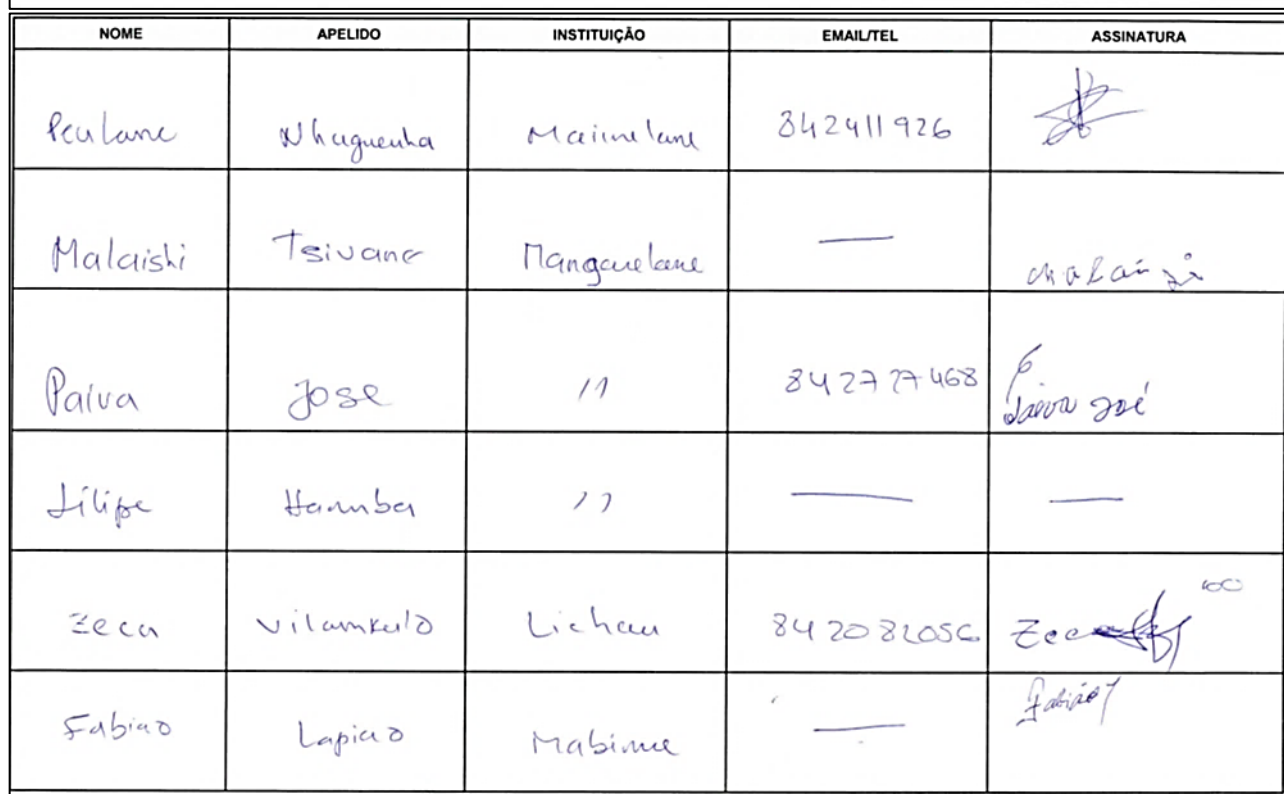 NOME APELIDO INSTITUIÇÃO EMAIL/TEL ASSINATURA
Peulane Nhaguenha Maimelane 842411926
Malaishi Tsivane Mangarelane —
Paiva Jose 11 842727468 Paiva José
Filipe Hanmba 11 — —
Zeca Vilamkulo Lichau 842082056 Zeca
Fabiao Lapiao Mabime — Fabião